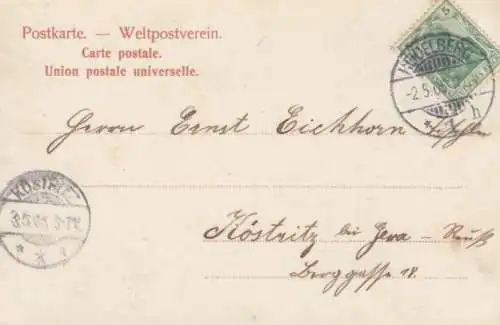 Postkarte. — Weltpostverein.
Carte postale.
Union postale universelle.
5
HEIDELBERG
-2.5.0
1 h
Herrn Ernst Eichhorn
KÖSTRITZ
3.5.0
Köstritz bei Gera-Reuß
Berggasse 18.